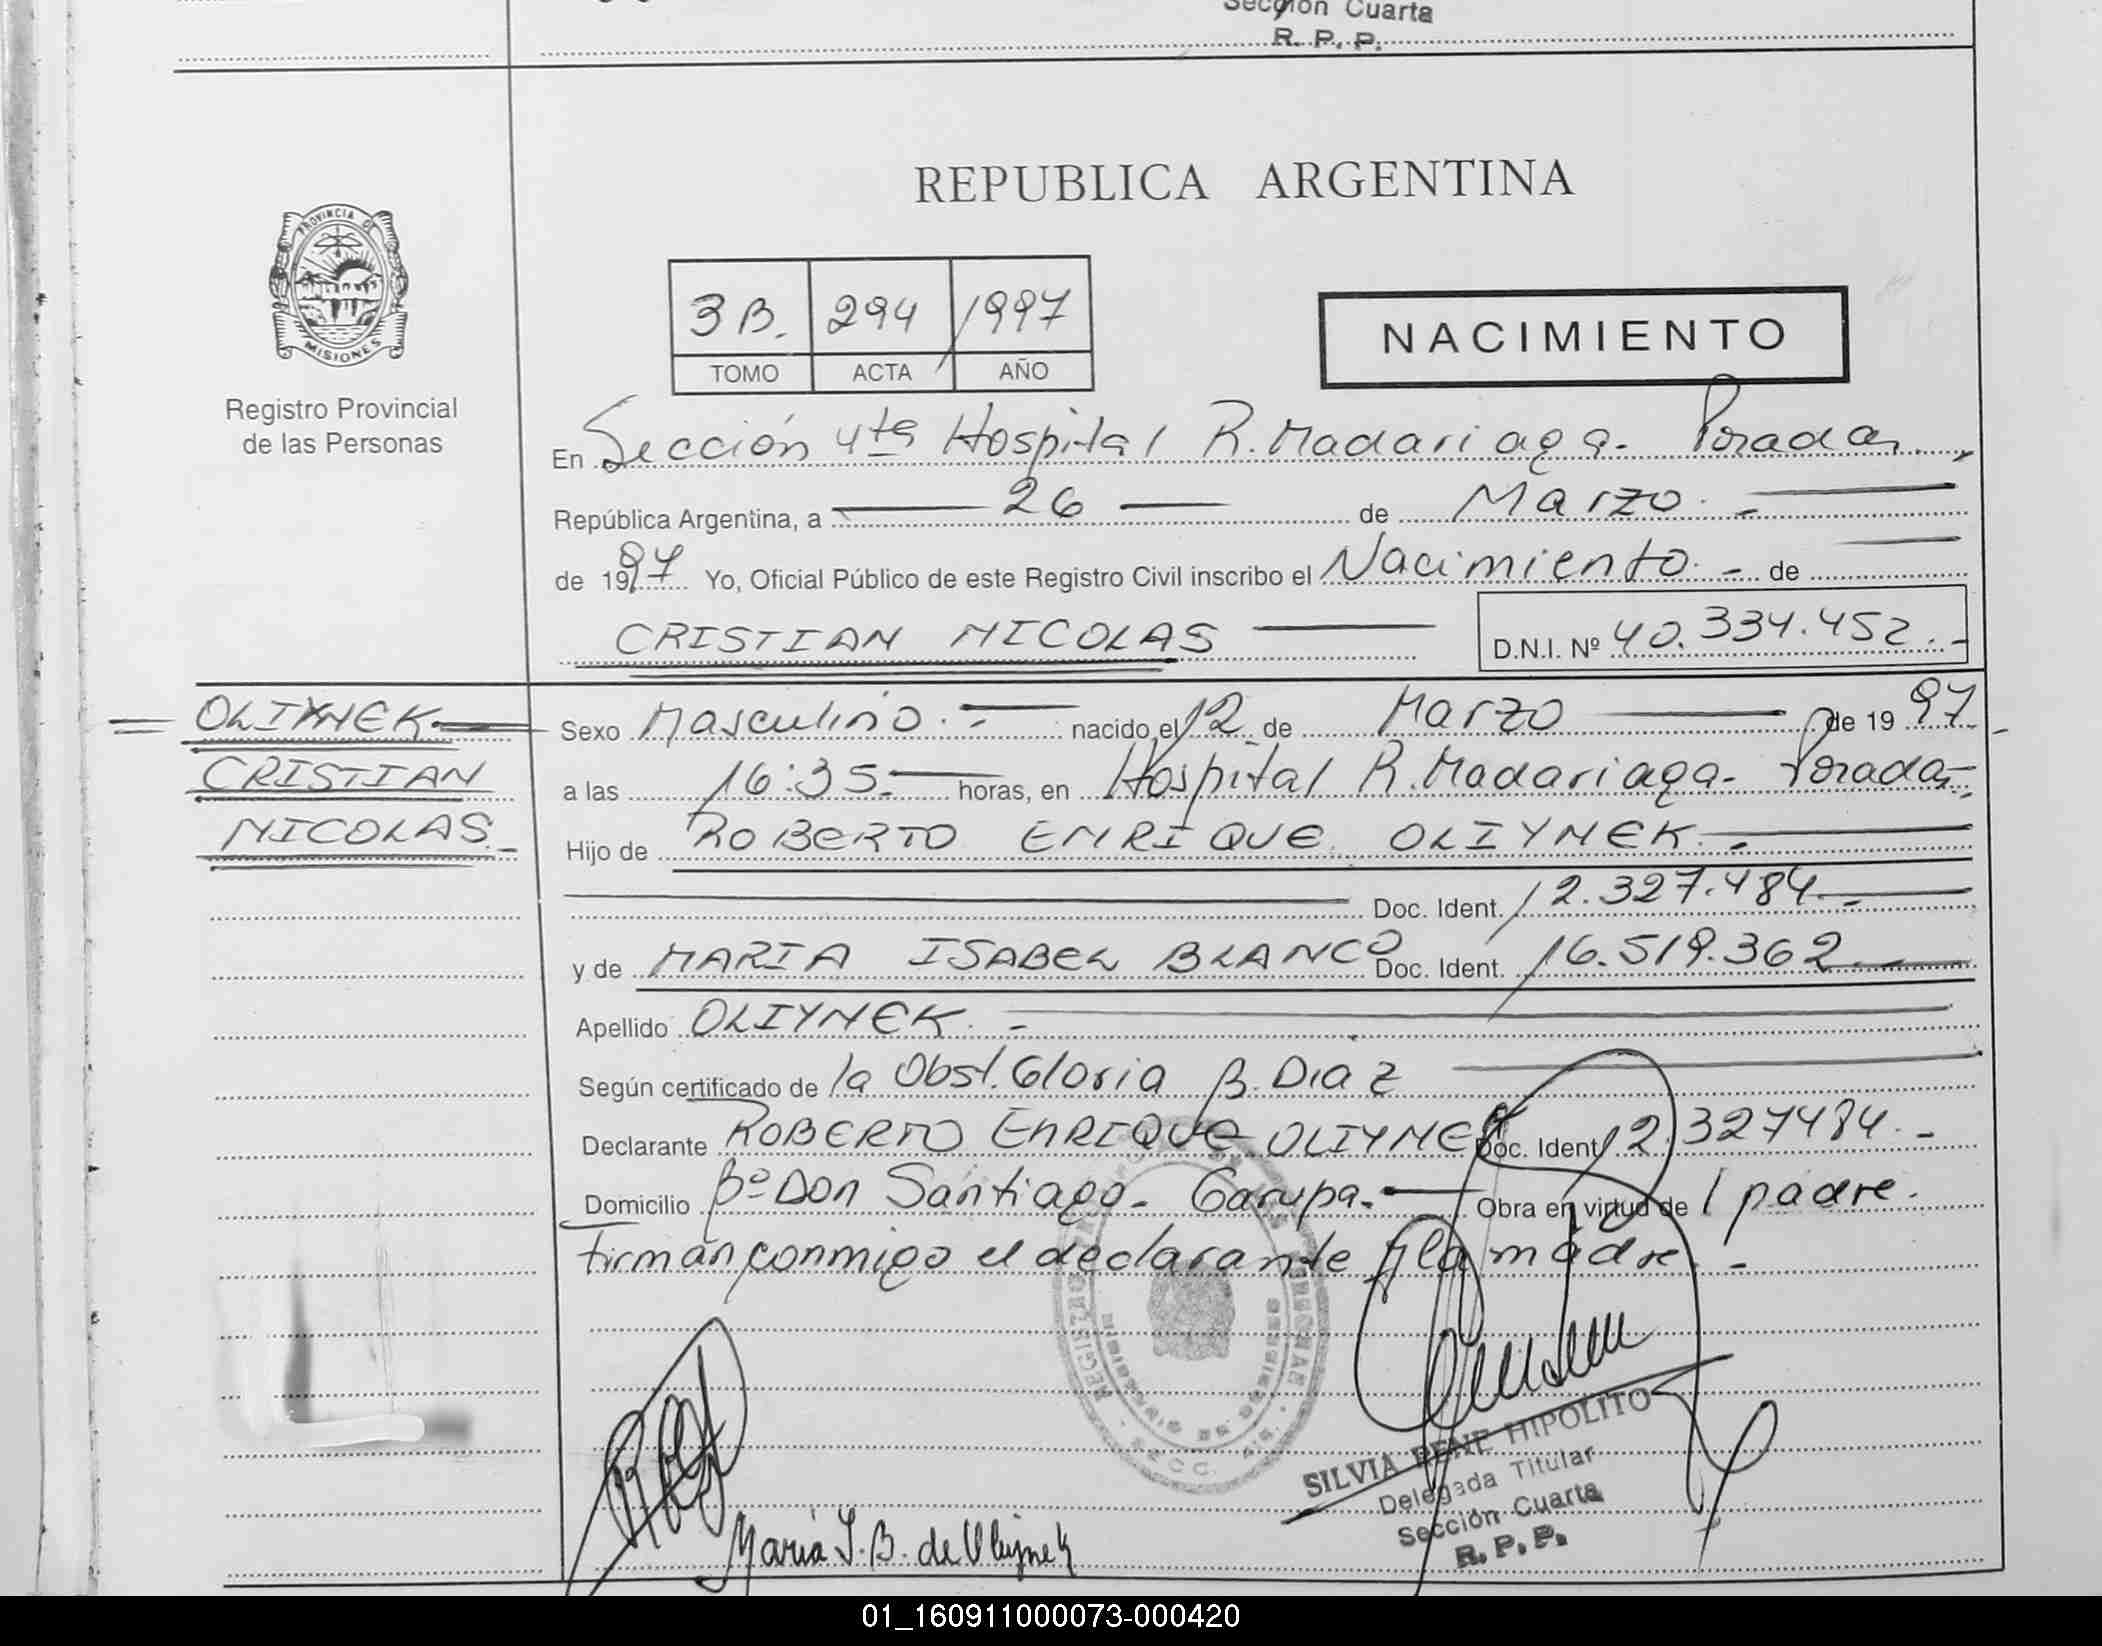 Sección Cuarta
R. P. P.
REPUBLICA ARGENTINA
PROVINCIA DE
MISIONES
Registro Provincial
de las Personas
3B. 294 1997
TOMO ACTA AÑO
NACIMIENTO
En Sección 4ta Hospital R. Madariaga - Posadas,
República Argentina, a 26 de Marzo. -
de 1997 Yo, Oficial Público de este Registro Civil inscribo el Nacimiento. - de
CRISTIAN NICOLAS D.N.I. Nº 40.334.452. -
OLIYNEK
CRISTIAN
NICOLAS. -
Sexo Masculino. - nacido el 12 de Marzo de 1997. -
a las 16:35 horas, en Hospital R. Madariaga - Posadas. -
Hijo de ROBERTO ENRIQUE OLIYNEK. -
Doc. Ident. 12.327.484. -
y de MARIA ISABEL BLANCO Doc. Ident. 16.519.362
Apellido OLIYNEK. -
Según certificado de la Obst. Gloria B. Diaz
Declarante ROBERTO ENRIQUE OLIYNEK Doc. Ident. 12.327484. -
Domicilio Bº Don Santiago - Garupa. - Obra en virtud de l padre.
Firman conmigo el declarante y la madre. -
María I. B. de Oliynek
SILVIA RENE HIPOLITO
Delegada Titular
Sección Cuarta
R. P. P.
01_160911000073-000420